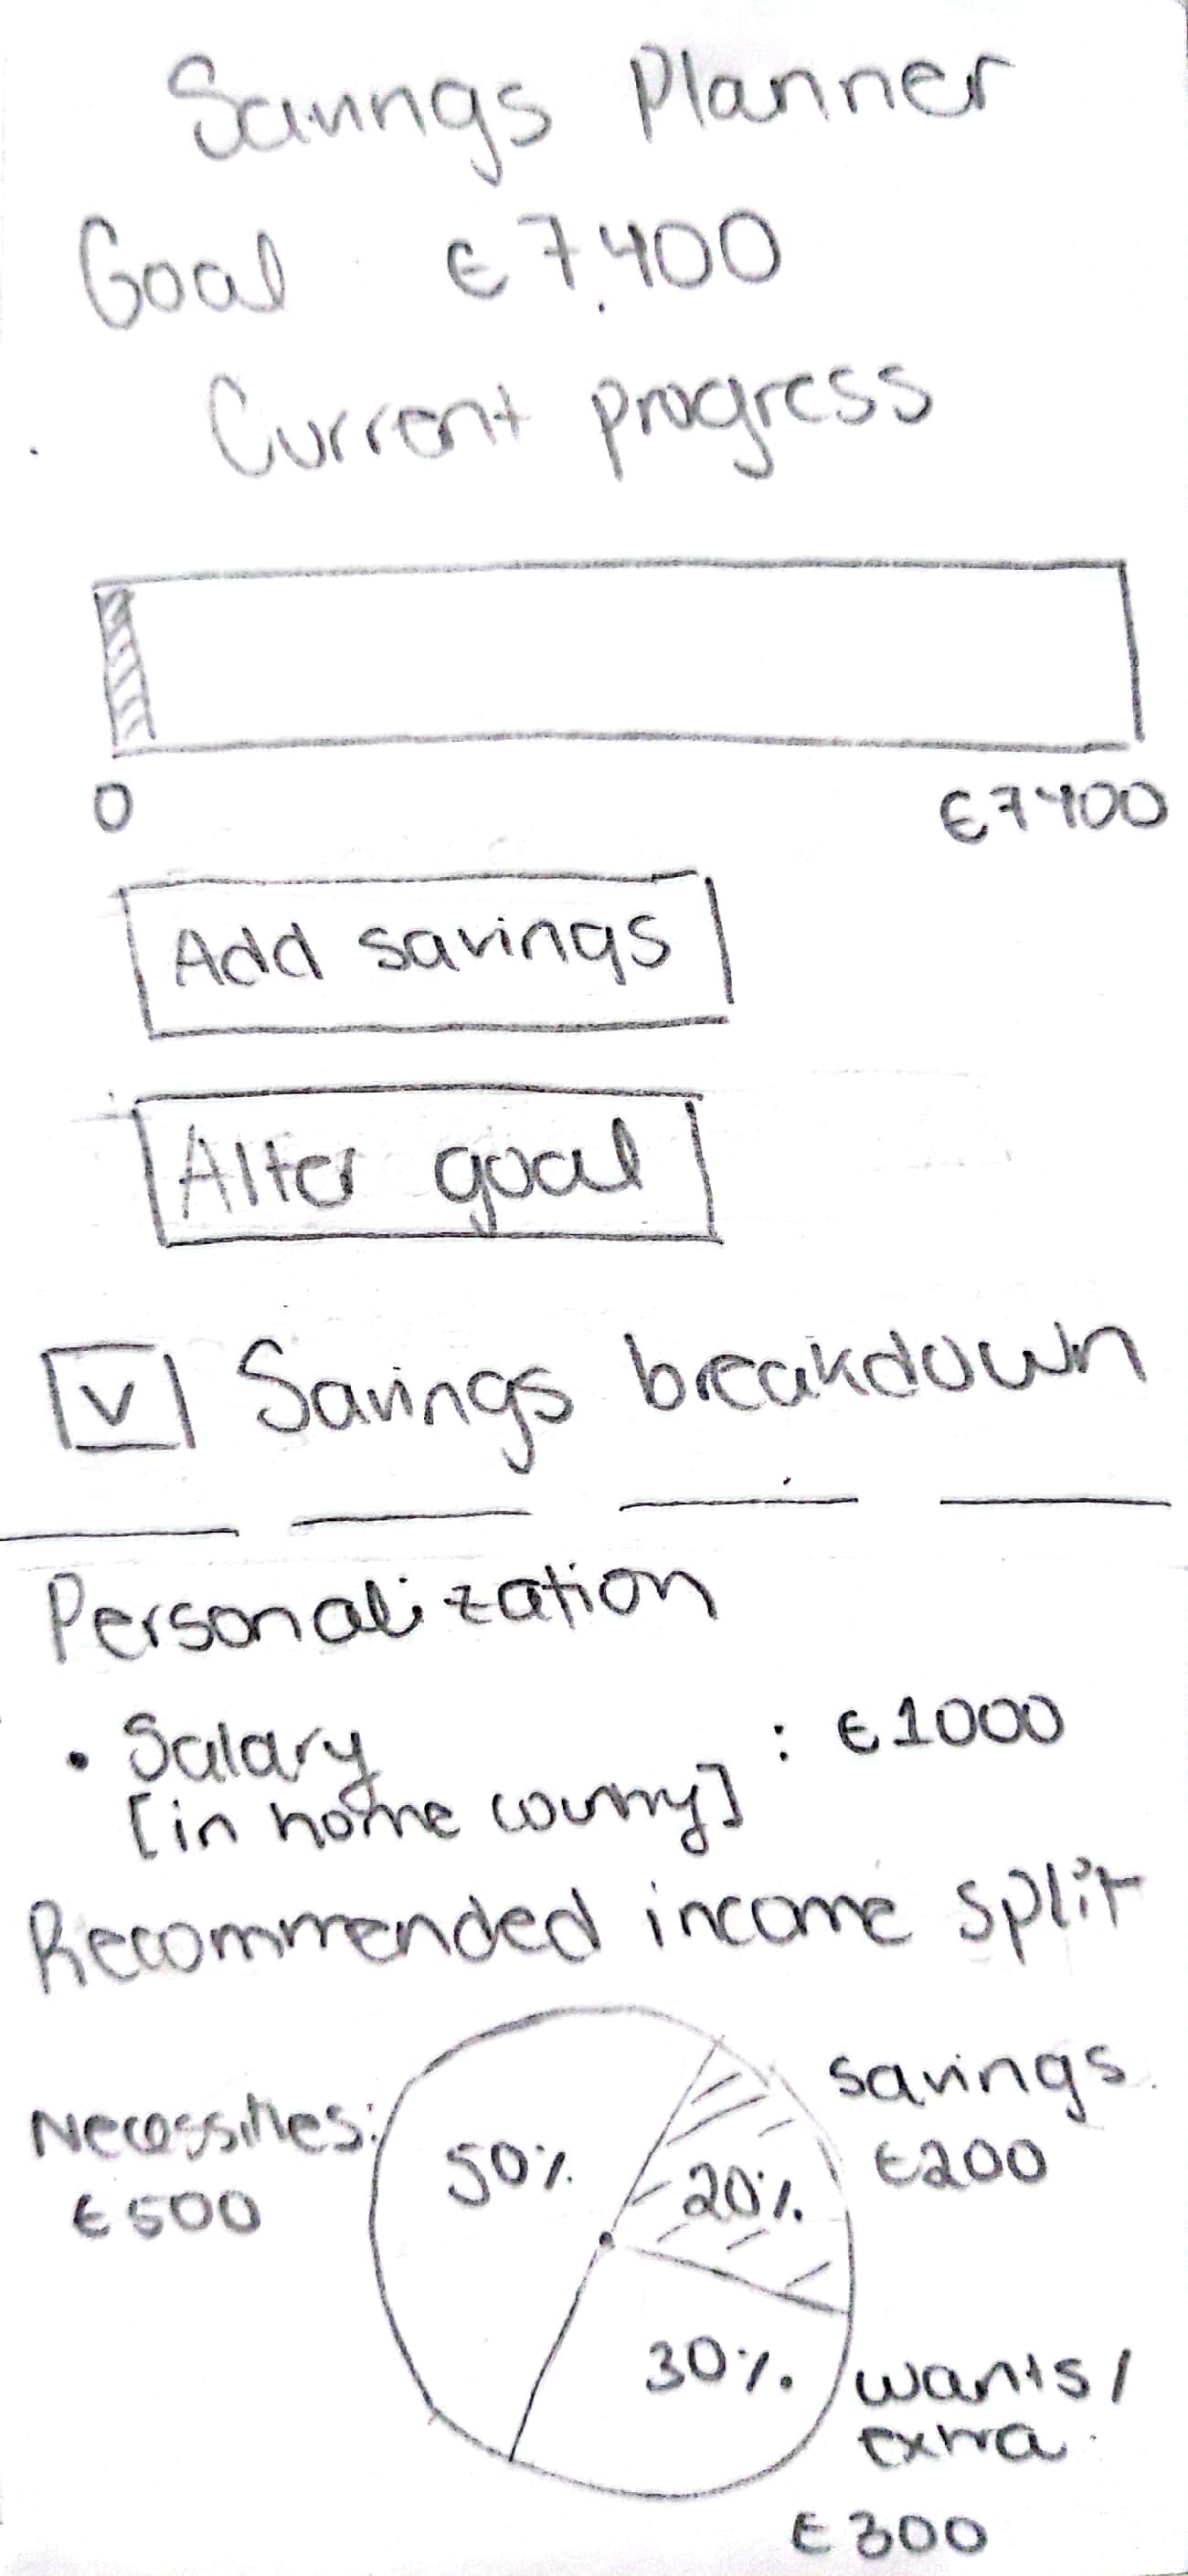 Savings Planner
Goal : €7,400
Current progress
0
€7400
Add savings
Alter goal
v Savings breakdown
Personalization
• Salary : €1000
[in home country]
Recommended income split
savings
Necessities:
50%
€200
20%
€500
30%
wants/
extra
€300